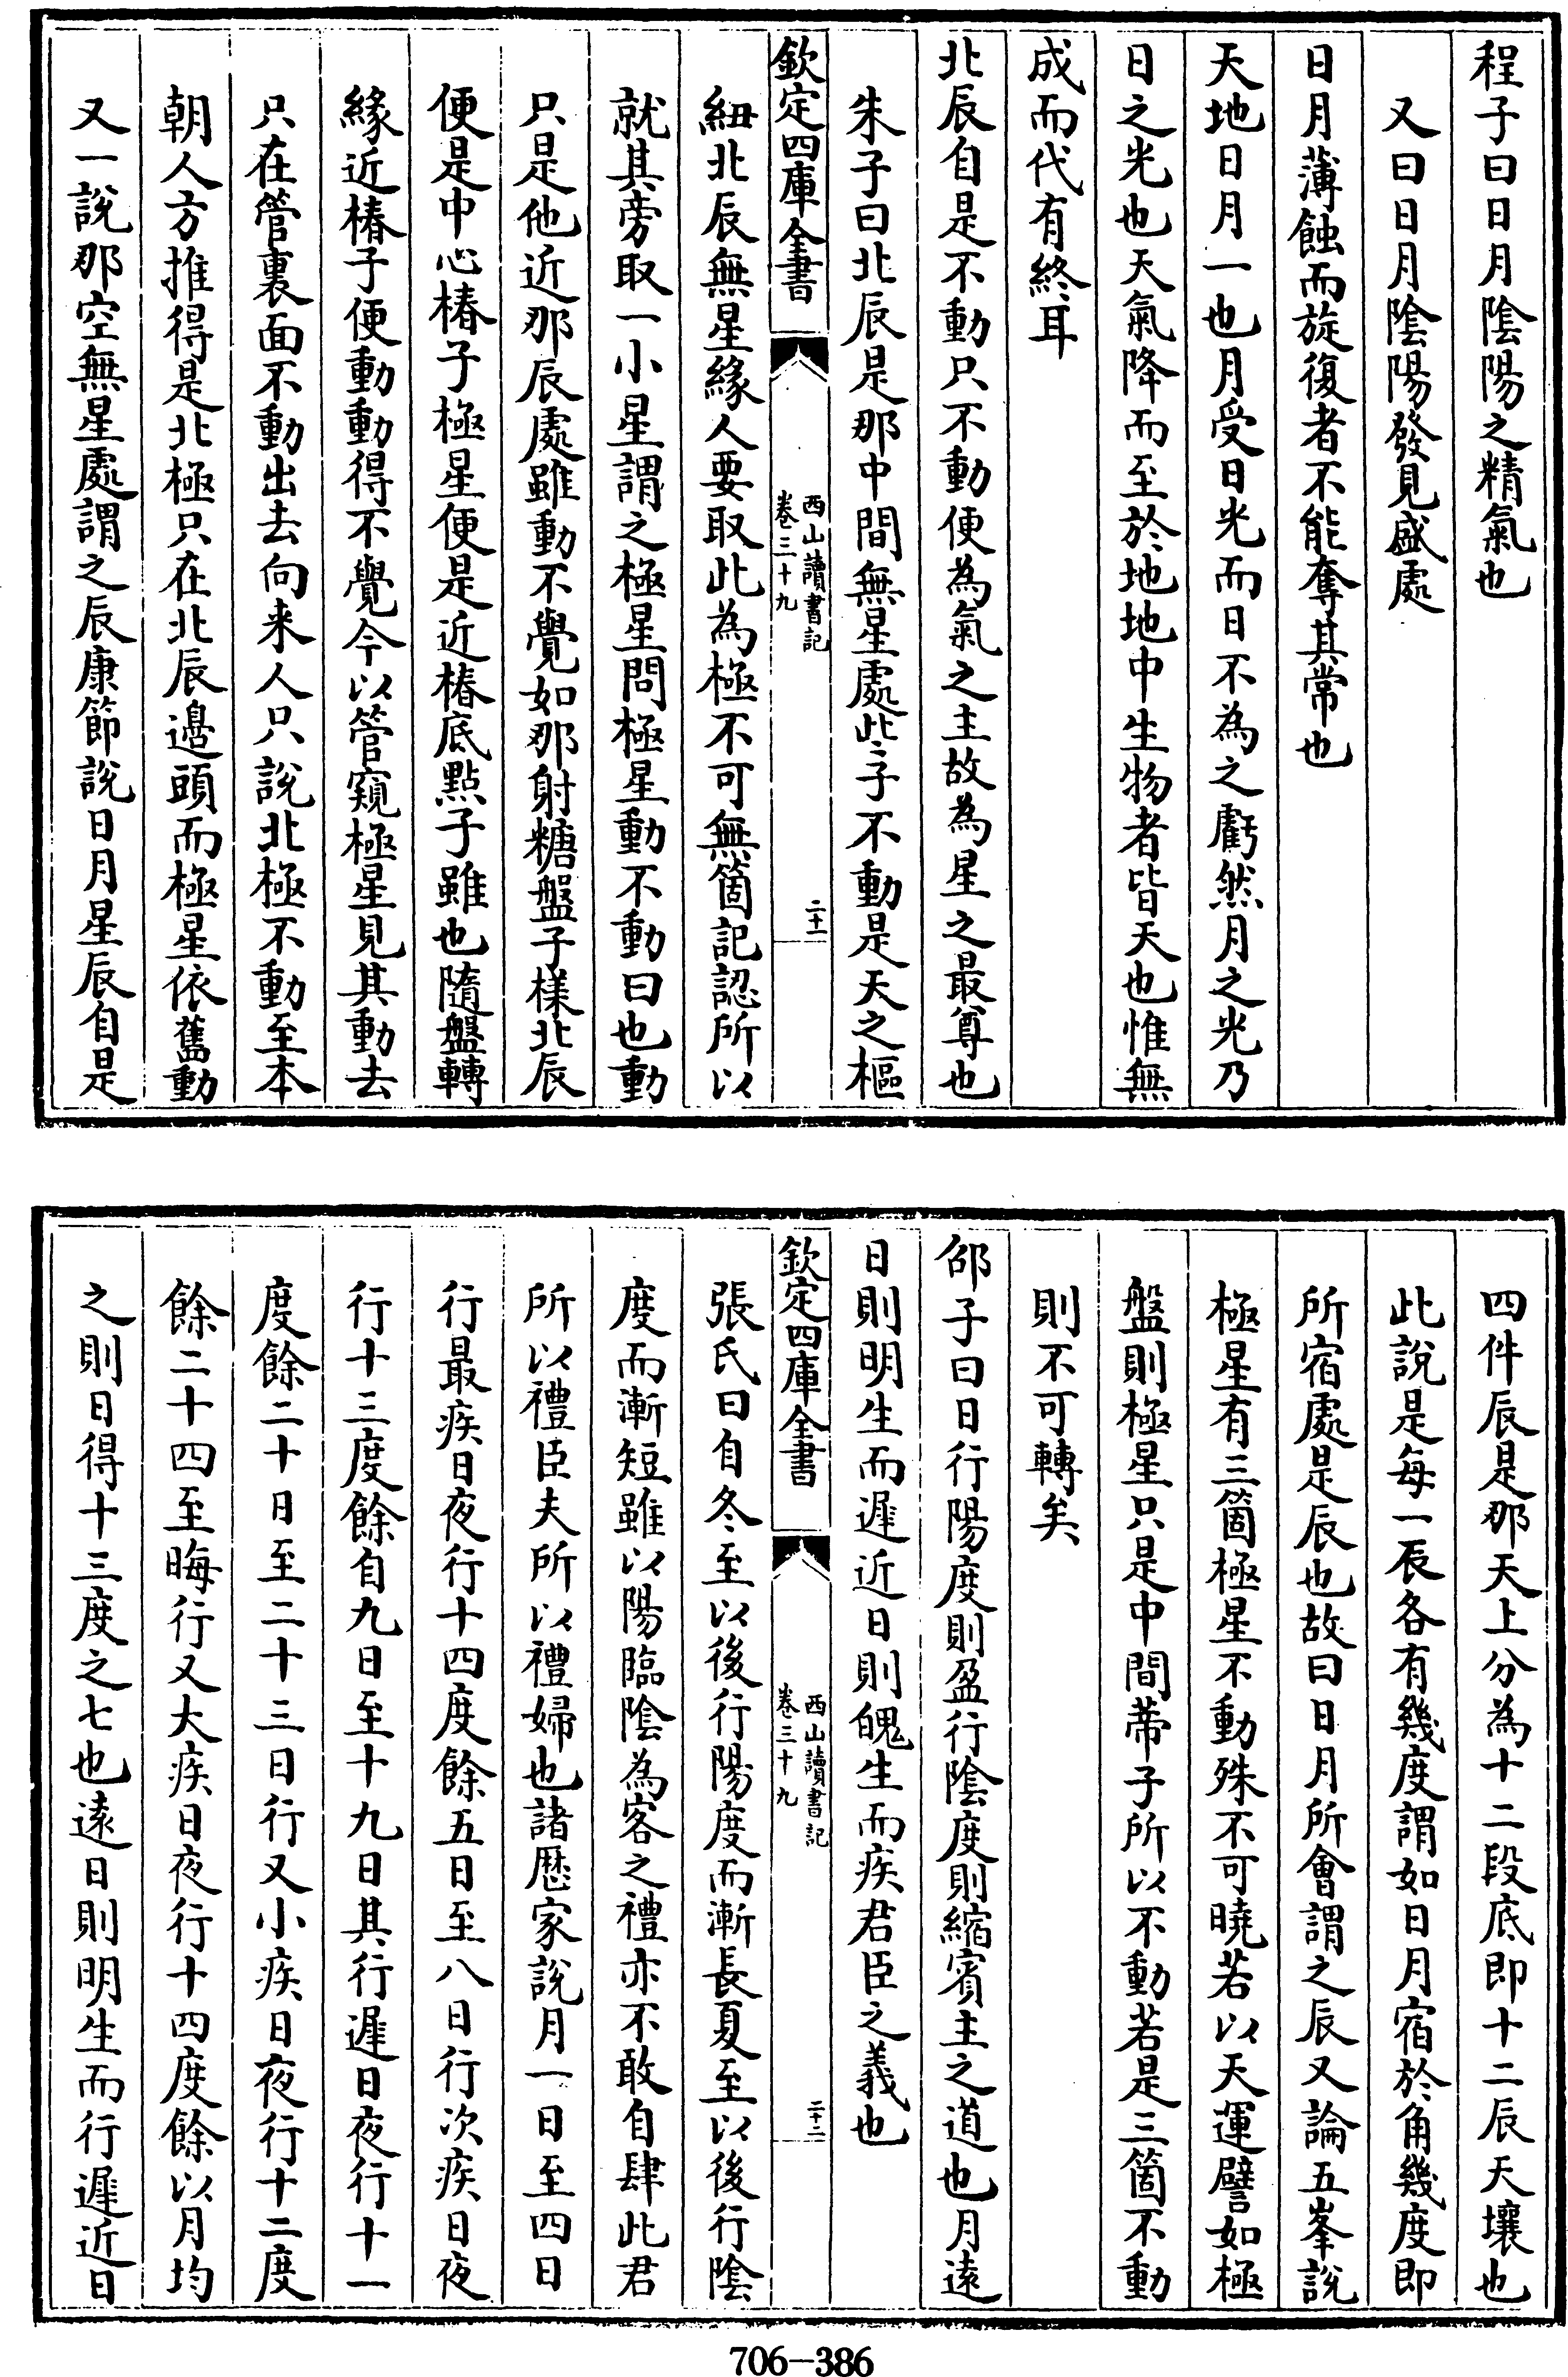 程子曰日月隂陽之精氣也
又曰日月隂陽發見盛處
日月薄蝕而旋復者不能奪其常也
天地日月一也月受日光而日不為之虧然月之光乃
日之光也天氣降而至於地地中生物者皆天也惟無
成而代有終耳
北辰自是不動只不動便為氣之主故為星之最尊也
朱子曰北辰是那中間無星處此子不動是天之樞
欽定四庫全書
西山讀書記
卷三十九
二十一
紐北辰無星緣人要取此為極不可無箇記認所以
就其旁取一小星謂之極星問極星動不動曰也動
只是他近那辰處雖動不覺如那射糖盤子様北辰
便是中心椿子極星便是近椿底點子雖也隨盤轉
緣近椿子便動動得不覺今以管窺極星見其動去
只在管裏面不動出去向来人只說北極不動至本
朝人方推得是北極只在北辰邉頭而極星依舊動
又一說那空無星處謂之辰康節說日月星辰自是
四件辰是那天上分為十二段底即十二辰天壤也
此說是每一辰各有幾度謂如日月宿於角幾度即
所宿處是辰也故曰日月所會謂之辰又論五峯說
極星有三箇極星不動殊不可曉若以天運譬如極
盤則極星只是中間蒂子所以不動若是三箇不動
則不可轉矣
邵子曰日行陽度則盈行隂度則縮賓主之道也月逺
日則明生而遲近日則魄生而疾君臣之義也
欽定四庫全書
西山讀書記
卷三十九
二十二
張氏曰自冬至以後行陽度而漸長夏至以後行隂
度而漸短雖以陽臨隂為客之禮亦不敢自肆此君
所以禮臣夫所以禮婦也諸歴家說月一日至四日
行最疾日夜行十四度餘五日至八日行次疾日夜
行十三度餘自九日至十九日其行遲日夜行十一
度餘二十日至二十三日行又小疾日夜行十二度
餘二十四至晦行又大疾日夜行十四度餘以月均
之則日得十三度之七也逺日則明生而行遲近日
706—386